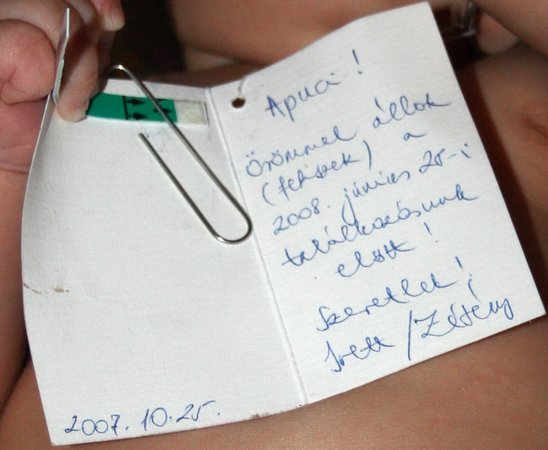 2007. 10. 25.
Apuci!
Örömmel állok
(fekszek) a
2008. június 25-i
találkozásunk
előtt!
Szeretlek!
/Zétény